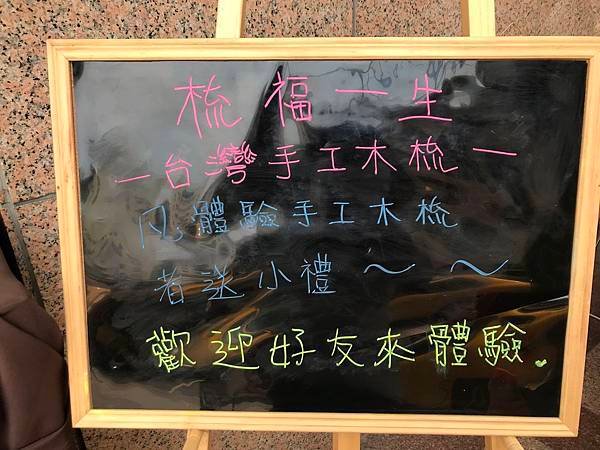 梳福一生
—台灣手工木梳—
凡體驗手工木梳
者送小禮～～
歡迎好友來體驗.